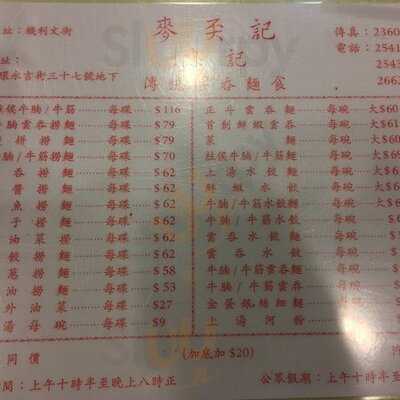 址：機利文街
麥奀記
傳真：2360
電話：2541
址：
記
2543
環永吉街三十七號地下
麵食
2662
柱侯牛腩/牛筋……每碟……$116
腩雲吞撈麵……每碟……$79
拼撈麵……每碟……$79
腩/牛筋撈麵……每碟……$70
吞撈麵……每碟……$62
醬撈麵……每碟……$62
魚撈麵……每碟……$62
子撈麵……每碟……$62
油菜撈麵……每碟……$62
餃撈麵……每碟……$62
蔥撈麵……每碟……$58
油撈麵……每碟……$53
外油菜……每碟……$27
湯每碗……$9
正斗雲吞麵……每碗……大$60
首創鮮蝦雲吞……每碗……大$61
菜麵……每碗……大$
柱侯牛腩/牛筋……每碗……大$69
上湯水餃麵……每碗……大$6
鮮蝦水餃……每碗……大$6
牛腩/牛筋水餃麵……每碗……大$6
牛腩/牛筋水餃……每碗……大$6
雲吞水餃麵……每碗……
雲吞水餃……每碗……
牛腩/牛筋雲吞麵……每碗
牛腩/牛筋雲吞……每碗
金蛋銀絲細麵……每碗
上湯河粉……每碗
同價
(加底加$20)
間：上午十時半至晚上八時正
公眾假期：上午十時半至